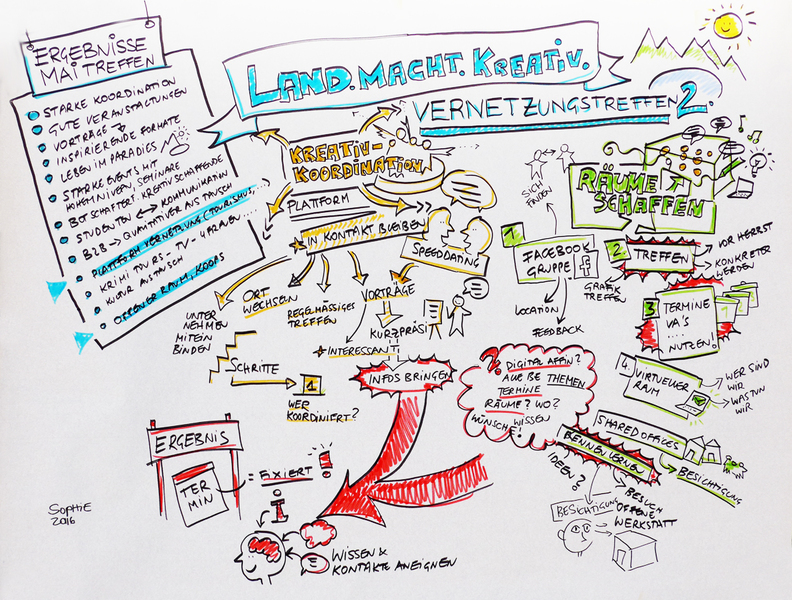 ERGEBNISSE
MAI TREFFEN
STARKE KOORDINATION
GUTE VERANSTALTUNGEN
VORTRÄGE
INSPIRIERENDE FORMATE
LEBEN IM PARADIES
STARKE EVENTS MIT
HOHEM NIVEAU, SEMINARE
BOTSCHAFTER F. KREATIVSCHAFFENDE
STUDENTEN ↔ KOMMUNIKATION
B2B → QUALITATIVER AUSTAUSCH
PLATTFORM VERNETZUNG (TOURISMUS, ...
KRIMI TOURS - TV - 4 FRAUEN ...
KULTUR AUSTAUSCH
OFFENER RAUM, KOOPS
LAND.MACHT.KREATIV.
VERNETZUNGSTREFFEN 2.
KREATIV-
KOORDINATION
PLATTFORM
IN KONTAKT BLEIBEN
SPEEDDATING
UNTER
NEHMEN
MITEIN
BINDEN
ORT
WECHSELN
REGELMÄSSIGES
TREFFEN
VORTRÄGE
KURZPRÄSI
INTERESSANT
INFOS BRINGEN
SCHRITTE
1
WER
KOORDINIERT?
RÄUME
SCHAFFEN
SICH
FINDEN
1.
FACEBOOK
GRUPPE
f
LOCATION
FEEDBACK
2.
TREFFEN
VOR HERBST
KONKRETER
WERDEN
GRAFIK
TREFFEN
3
TERMINE
VA'S
....
NUTZEN!
1
4.
VIRTUELLER
RAUM
WER SIND
WIR
WAS TUN
WIR
?
DIGITAL AFFIN?
AUßE THEMEN
TERMINE
RÄUME? WO?
WÜNSCH WISSEN
!
SHARED OFFICES
BESICHTIGUNG
KENNENLERNEN
IDEEN?
BESICHTIGUNG
BESUCH
OFFENE
WERKSTATT
ERGEBNIS
TER
MIN
= FIXIERT!
i
WISSEN &
KONTAKTE ANEIGNEN
SOPHIE
2016